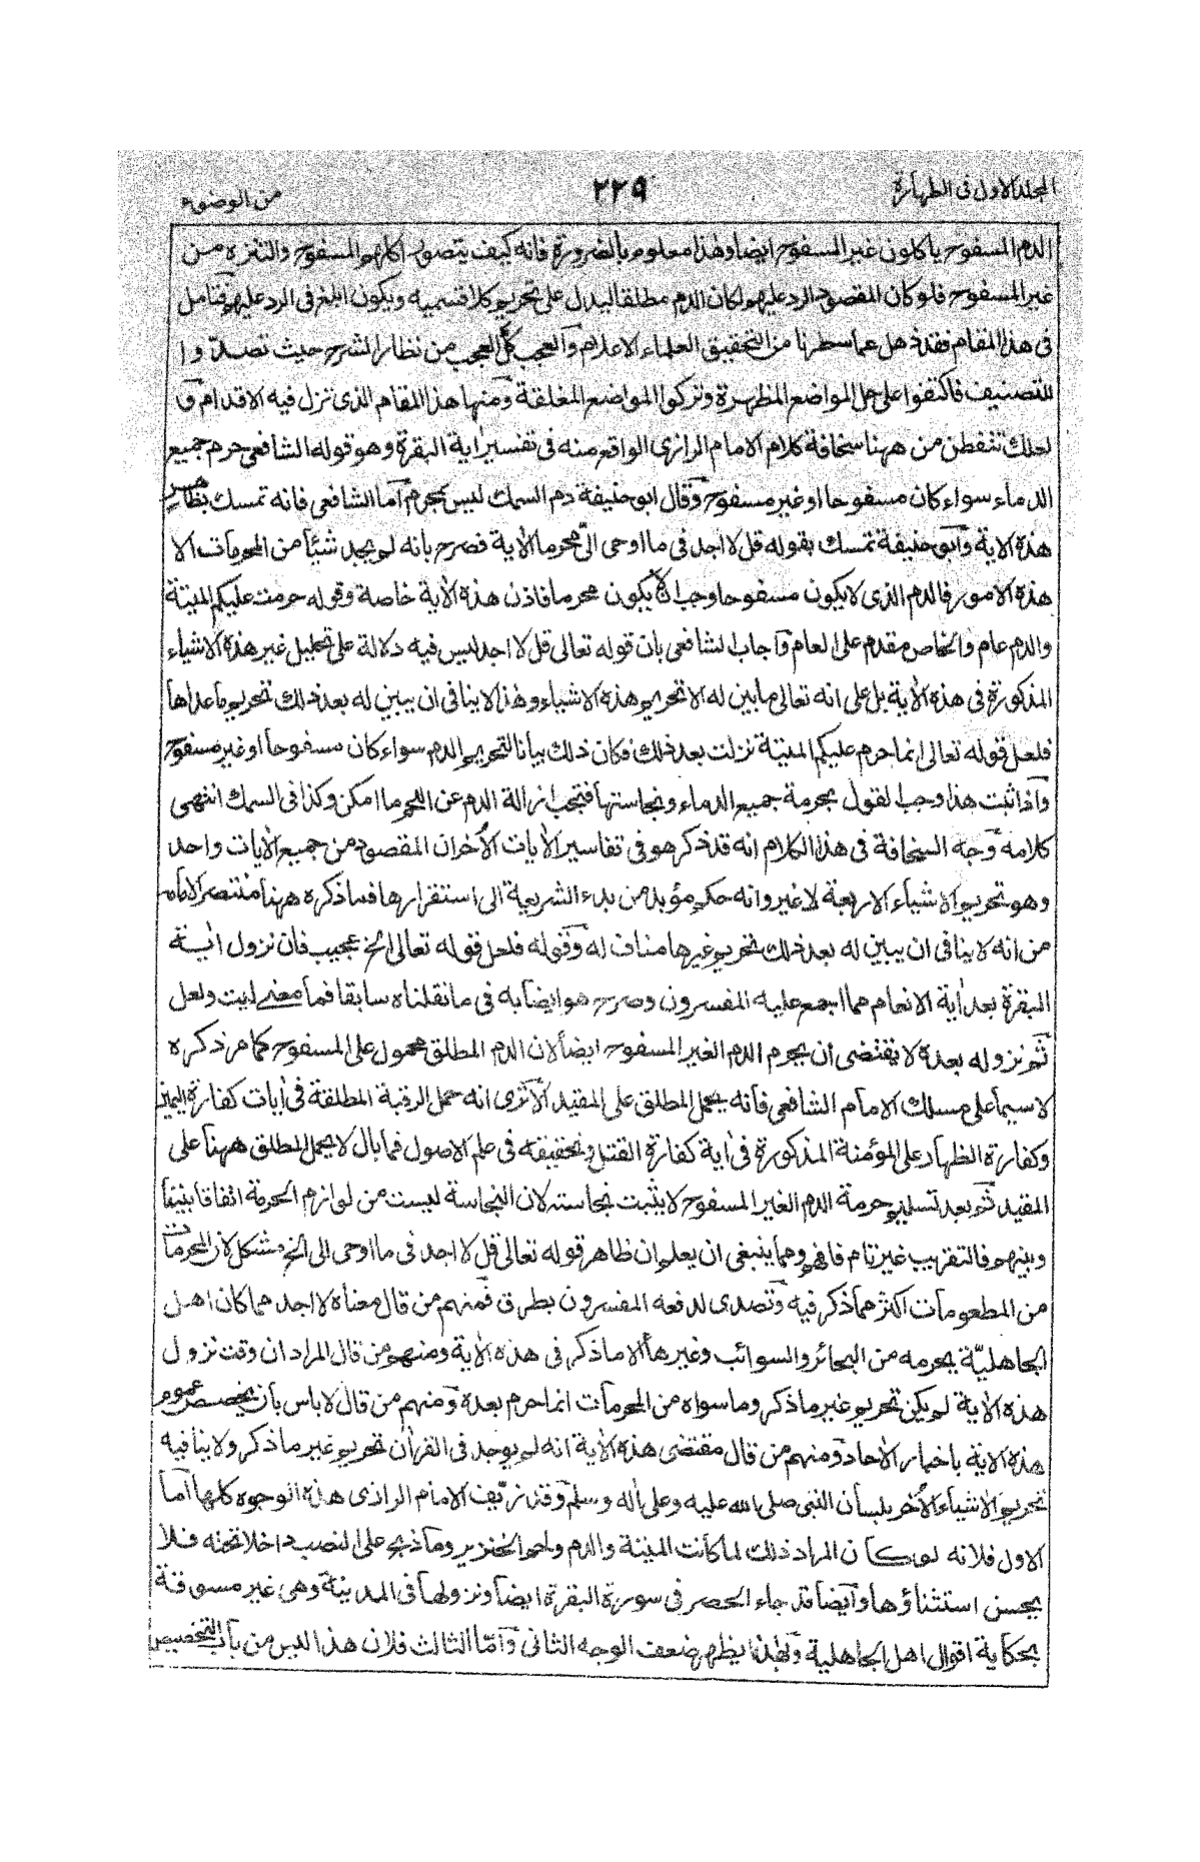 المجلد الاول فى الطهارة
٢٢٩
من الوضوء
الدم المسفوح ياكلون غير المسفوح ايضا وهذا معلوم بالضرورة فانه كيف يتصور اكلهم المسفوح والتنزه من
غير المسفوح فلو كان المقصود الرد عليهم لكان الدم مطلقا ليدل على تحريم كلا قسميه ويكون ابلغ فى الرد عليهم فتامل
فى هذا المقام فقد ذهل عما سطرنا من التحقيق العلماء الاعلام والعجب كل العجب من نظار الشرح حيث تصدوا
للتصنيف فاكتفوا على حل المواضع المظهرة وتركوا المواضع المغلقة ومنها هذا المقام الذى تزل فيه الاقدام و
لعلك تتفطن من ههنا سخافة كلام الامام الرازى الواقع منه فى تفسير اية البقرة وهو قوله الشافعى حرم جميع
الدماء سواء كان مسفوحا او غير مسفوح وقال ابو حنيفة دم السمك ليس بمحرم اما الشافعى فانه تمسك بظاهر
هذه الاية وابو حنيفة تمسك بقوله قل لا اجد فى ما اوحى الىّ محرما الاية فصرح بانه لم يجد شيئا من المحرمات الا
هذه الامور فالدم الذى لا يكون مسفوحا وجب ان لا يكون محرما فاذن هذه الاية خاصة وقوله حرمت عليكم الميتة
والدم عام والخاص مقدم على العام واجاب الشافعى بان قوله تعالى قل لا اجد ليس فيه دلالة على تحليل غير هذه الاشياء
المذكورة فى هذه الاية بل على انه تعالى ما بين له الا تحريم هذه الاشياء وهذا لا ينافى ان يبين له بعد ذلك تحريم ما عداها
فلعل قوله تعالى انما حرم عليكم الميتة نزلت بعد ذلك فكان ذلك بيانا لتحريم الدم سواء كان مسفوحا او غير مسفوح
واذا ثبت هذا وجب القول بحرمة جميع الدماء ونجاستها فتجب ازالة الدم عن اللحم ما امكن وكذا فى السمك انتهى
كلامه وجه السخافة فى هذا الكلام انه قد ذكر هو فى تفاسير الايات الاخر ان المقصود من جميع الايات واحد
وهو تحريم الاشياء الاربعة لا غير وانه حكم مؤبد من بدء الشريعة الى استقرارها فما ذكره ههنا منتصرا لامامه
من انه لا ينافى ان يبين له بعد ذلك تحريم غيرها مناف له وقوله فلعل قوله تعالى الخ عجيب فان نزول اية
البقرة بعد اية الانعام مما اجمع عليه المفسرون وصرح هو ايضا به فى ما نقلناه سابقا فما معنى ليت ولعل
ثم نزوله بعدة لا يقتضى ان يحرم الدم الغير المسفوح ايضا لان الدم المطلق محمول على المسفوح كما مر ذكره
لا سيما على مسلك الامام الشافعى فانه يحمل المطلق على المقيد الا ترى انه حمل الرقبة المطلقة فى ايات كفارة اليمين
وكفارة الظهار على المؤمنة المذكورة فى اية كفارة القتل وتحقيقه فى علم الاصول فما بال لا يحمل المطلق ههنا على
المقيد ثم بعد تسليم حرمة الدم الغير المسفوح لا يثبت نجاسته لان النجاسة ليست من لوازم الحرمة اتفاقا بيننا
وبينهم فالتقريب غير تام فافهم ومما ينبغى ان يعلم ان ظاهر قوله تعالى قل لا اجد فى ما اوحى الى الخ مشكل لان المحرمات
من المطعومات اكثر مما ذكر فيه وتصدى لدفعه المفسرون بطرق فمنهم من قال معناه لا اجد مما كان اهل
الجاهليّة يحرمه من البحائر والسوائب وغيرها الا ما ذكر فى هذه الاية ومنهم من قال المراد ان وقت نزول
هذه الاية لم يكن تحريم غير ما ذكر وما سواه من المحرمات انما حرم بعده ومنهم من قال لا باس بان يخصص عموم
هذه الاية باخبار الاحاد ومنهم من قال مقتضى هذه الاية انه لم يوجد فى القران تحريم غير ما ذكر ولا ينافيه
تحريم الاشياء الاخر بلسان النبى صلى الله عليه وعلى اله وسلم وقد زيف الامام الرازى هذه الوجوه كلها اما
الاول فلانه لو كان المراد ذلك لما كانت الميتة والدم ولحم الخنزير وما ذبح على النصب داخلا تحته فلا
يحسن استثناؤها وايضا قد جاء الحصر فى سورة البقرة ايضا ونزولها فى المدينة وهى غير مسوقة
بحكاية اقوال اهل الجاهلية وبهذا يظهر ضعف الوجه الثانى واما الثالث فلان هذا ليس من باب التخصيص